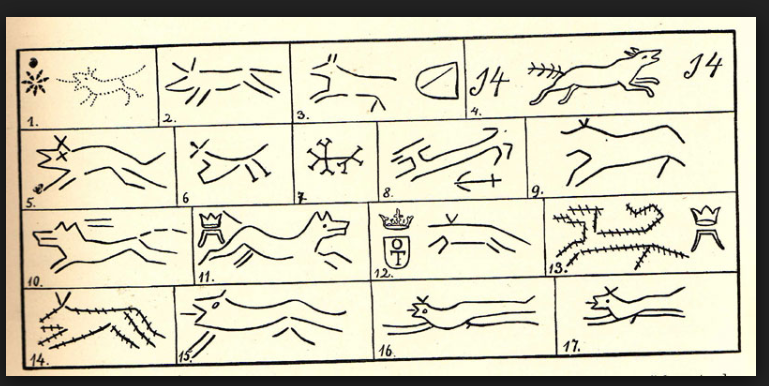 1. 2. 3. 14 4. 14
5. 6 7. 8. 9.
10. 11. 12. OT 13.
14. 15. 16. 17.